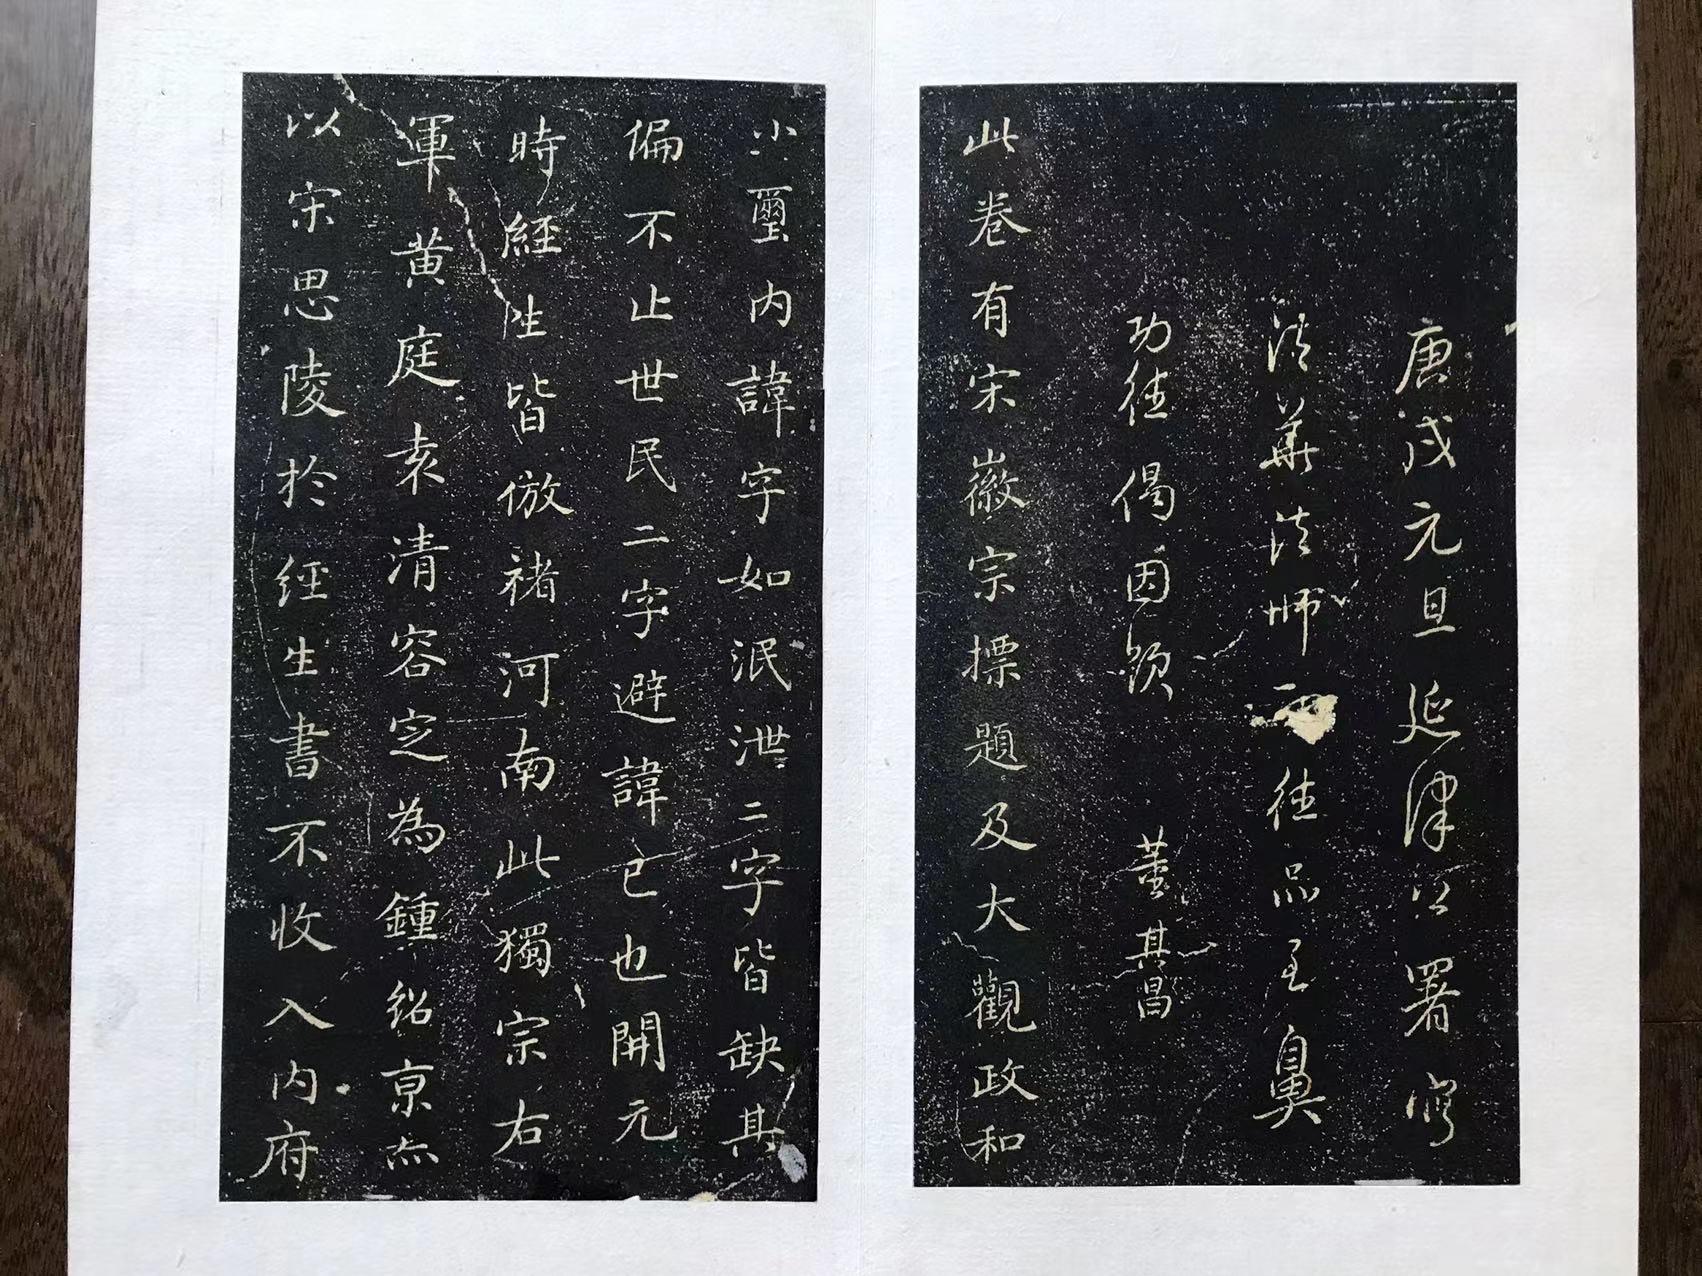 庚戌元旦延津公署寫
法華法師德品至鼻
功德偈因題 董其昌
此卷有宋徽宗摽題及大觀政和
小璽内諱字如泯泄二字皆缺其
偏不止世民二字避諱已也開元
時經生皆倣褚河南此獨宗右
軍黄庭袁清容定為鍾紹京亦
以宋思陵於經生書不收入内府